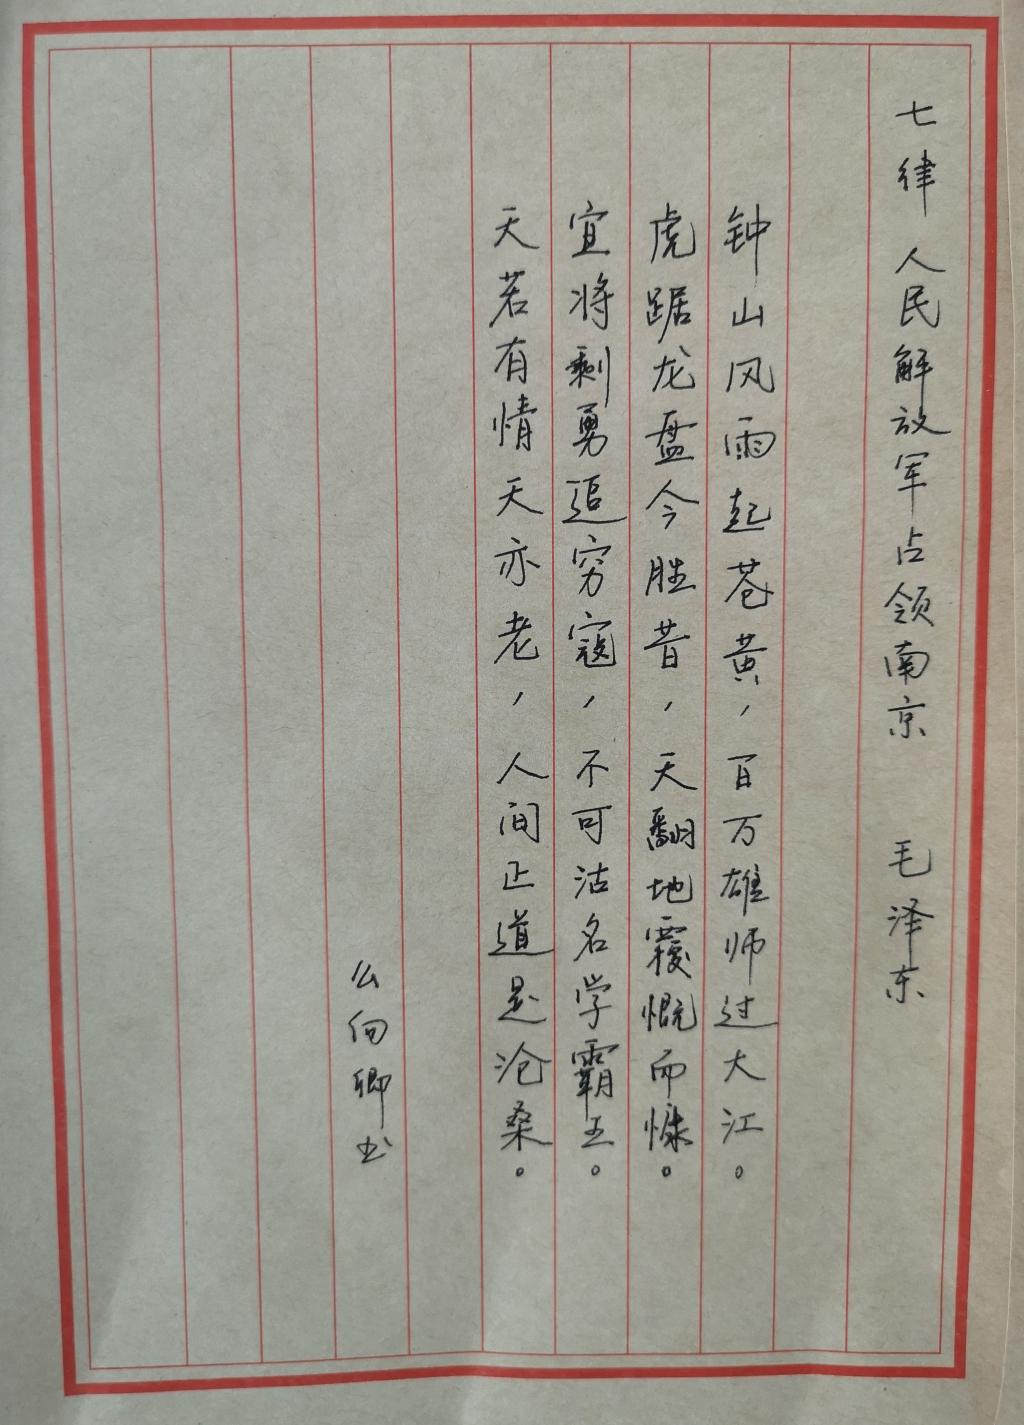 七律 人民解放军占领南京 毛泽东
钟山风雨起苍黄，百万雄师过大江。
虎踞龙盘今胜昔，天翻地覆慨而慷。
宜将剩勇追穷寇，不可沽名学霸王。
天若有情天亦老，人间正道是沧桑。
么向卿书